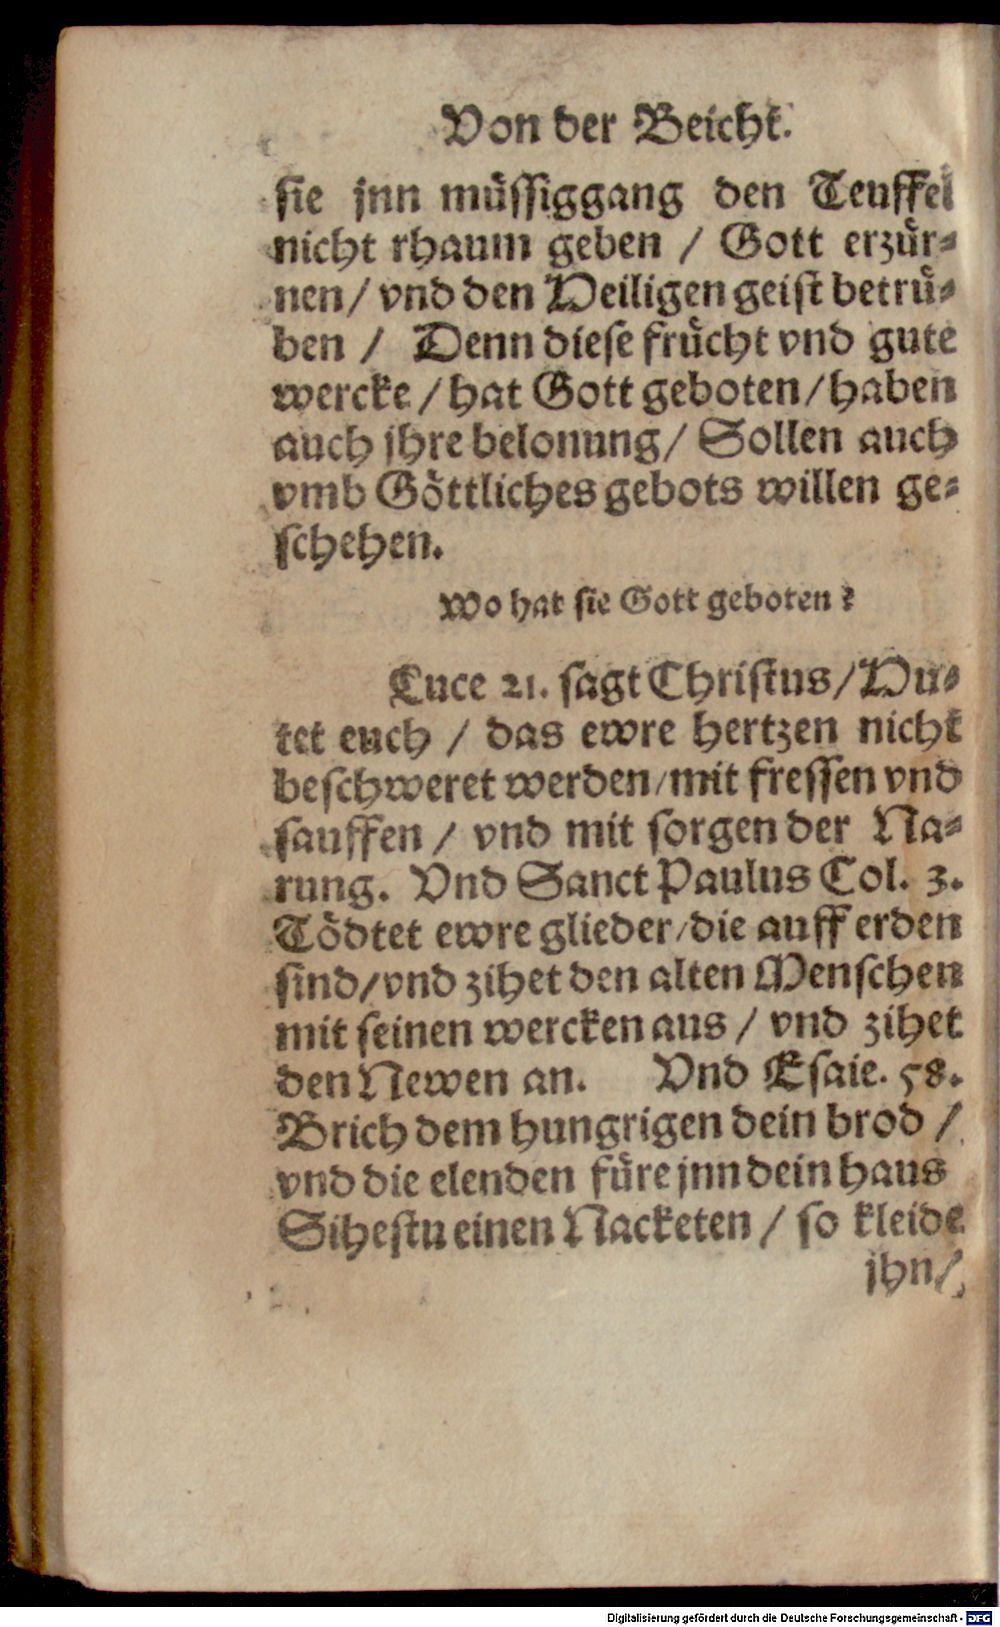 Von der Beicht.
sie jnn müssiggang den Teuffel
nicht rhaum geben / Gott erzür⸗
nen / vnd den Heiligen geist betrü⸗
ben / Denn diese frücht vnd gute
wercke / hat Gott geboten / haben
auch jhre belonung / Sollen auch
vmb Göttliches gebots willen ge⸗
schehen.
Wo hat sie Gott geboten?
Luce 21. sagt Christus / Hu⸗
tet euch / das ewre hertzen nicht
beschweret werden / mit fressen vnd
sauffen / vnd mit sorgen der Na⸗
rung. Vnd Sanct Paulus Col. 3.
Tödtet ewre glieder / die auff erden
sind / vnd zihet den alten Menschen
mit seinen wercken aus / vnd zihet
den Newen an. Vnd Esaie. 58.
Brich dem hungrigen dein brod /
vnd die elenden füre jnn dein haus
Sihestu einen Nacketen / so kleide
jhn /
Digitalisierung gefördert durch die Deutsche Forschungsgemeinschaft - DFG